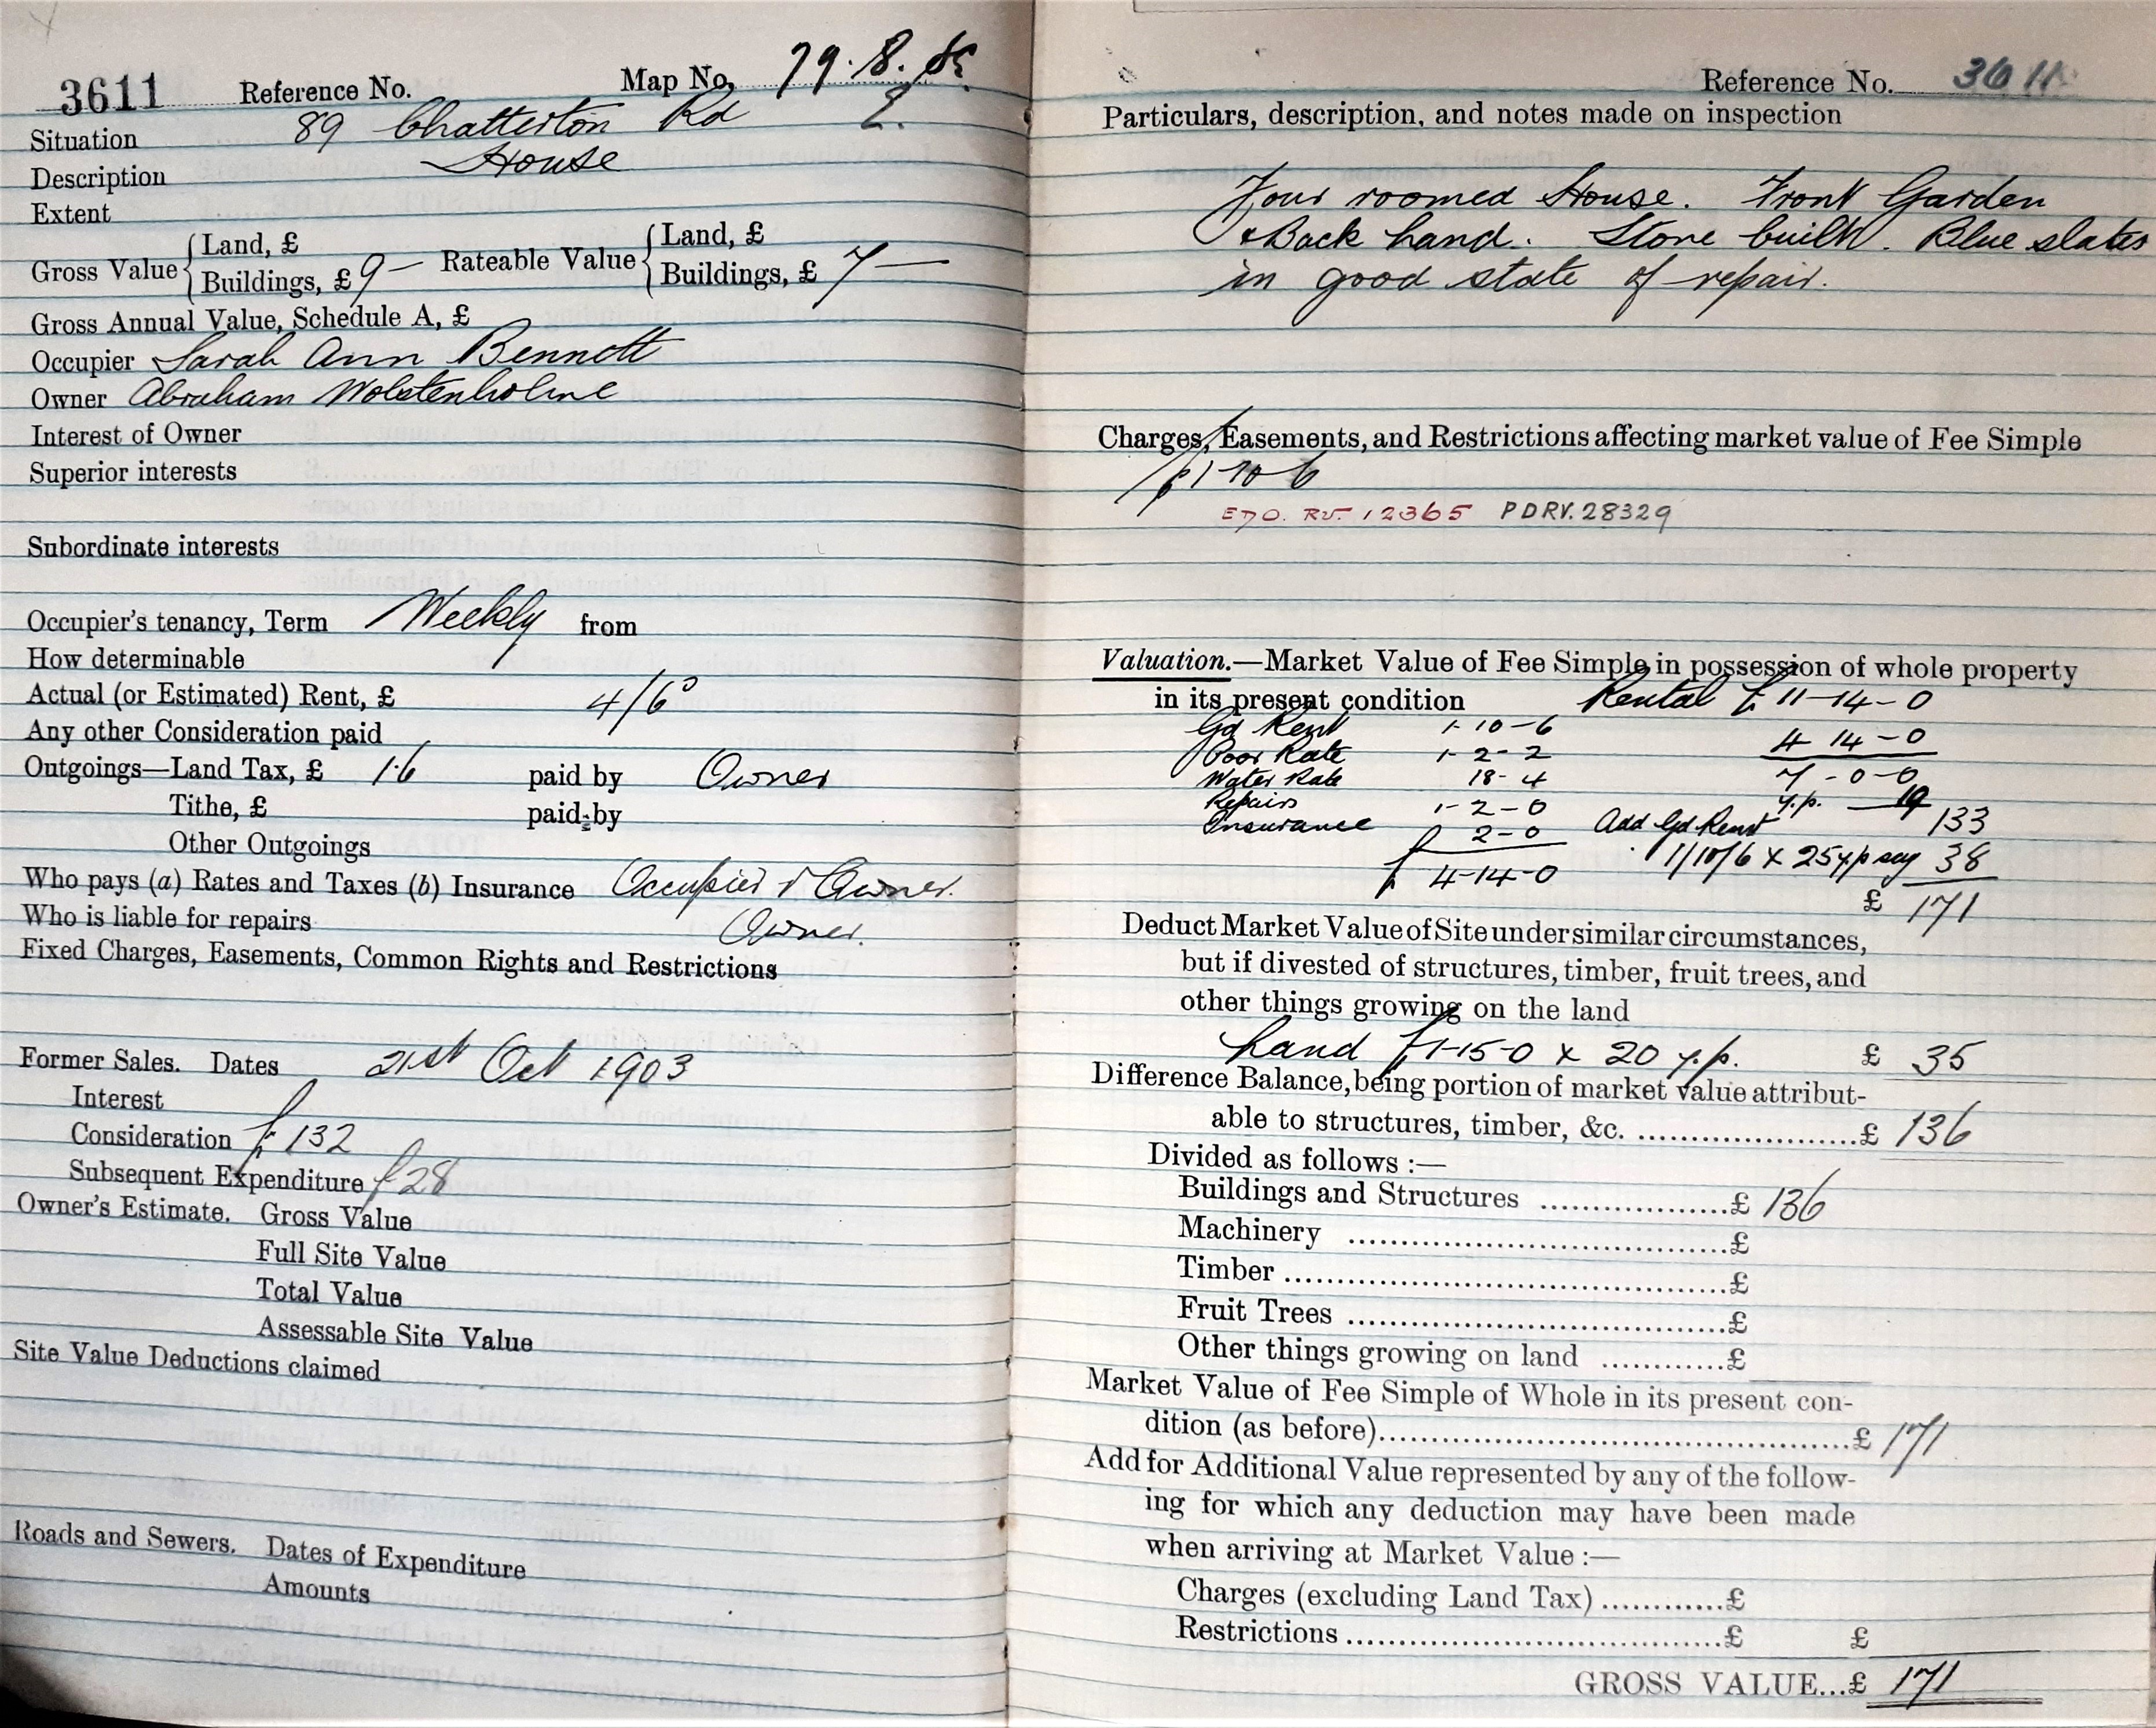 3611 Reference No. Map No. 79.8.
Situation 89 Chatterton Rd
Description House
Extent
Gross Value { Land, £
Buildings, £ 9 — Rateable Value { Land, £
Buildings, £ 7 —
Gross Annual Value, Schedule A, £
Occupier Sarah Ann Bennett
Owner Abraham Wolstenholme
Interest of Owner
Superior interests
Subordinate interests
Occupier's tenancy, Term Weekly from
How determinable
Actual (or Estimated) Rent, £ 4/6
Any other Consideration paid
Outgoings—Land Tax, £ 1.6 paid by Owner
Tithe, £ paid by
Other Outgoings
Who pays (a) Rates and Taxes (b) Insurance Occupier & Owner.
Who is liable for repairs Owner.
Fixed Charges, Easements, Common Rights and Restrictions
Former Sales. Dates 21st Oct 1903
Interest
Consideration £132
Subsequent Expenditure £28
Owner's Estimate. Gross Value
Full Site Value
Total Value
Assessable Site Value
Site Value Deductions claimed
Roads and Sewers. Dates of Expenditure
Amounts
Reference No. 3611
Particulars, description, and notes made on inspection
Four roomed House. Front Garden
& Back hand. Stone built. Blue slates
in good state of repair.
Charges, Easements, and Restrictions affecting market value of Fee Simple
£1-10-6
RV. 12365 PDRV. 28329
Valuation.—Market Value of Fee Simple in possession of whole property
in its present condition Rental £11-14-0
Gd Rent 1-10-6
Poor Rate 1-2-2 4 14-0
Water Rate 18-4 7-0-0
Repairs 1-2-0 y.p. 19
Insurance 2-0 Add Gd Rent 133
£ 4-14-0 1/10/6 x 25 yp say 38
£ 171
Deduct Market Value of Site under similar circumstances,
but if divested of structures, timber, fruit trees, and
other things growing on the land
Land £1-15-0 x 20 y.p. £ 35
Difference Balance, being portion of market value attribut-
able to structures, timber, &c. ....................£ 136
Divided as follows :—
Buildings and Structures ..................£ 136
Machinery ....................................£
Timber ..........................................£
Fruit Trees ....................................£
Other things growing on land ............£
Market Value of Fee Simple of Whole in its present con-
dition (as before)..............................................£ 171
Add for Additional Value represented by any of the follow-
ing for which any deduction may have been made
when arriving at Market Value :—
Charges (excluding Land Tax) ............£
Restrictions ....................................£ £
GROSS VALUE...£ 171